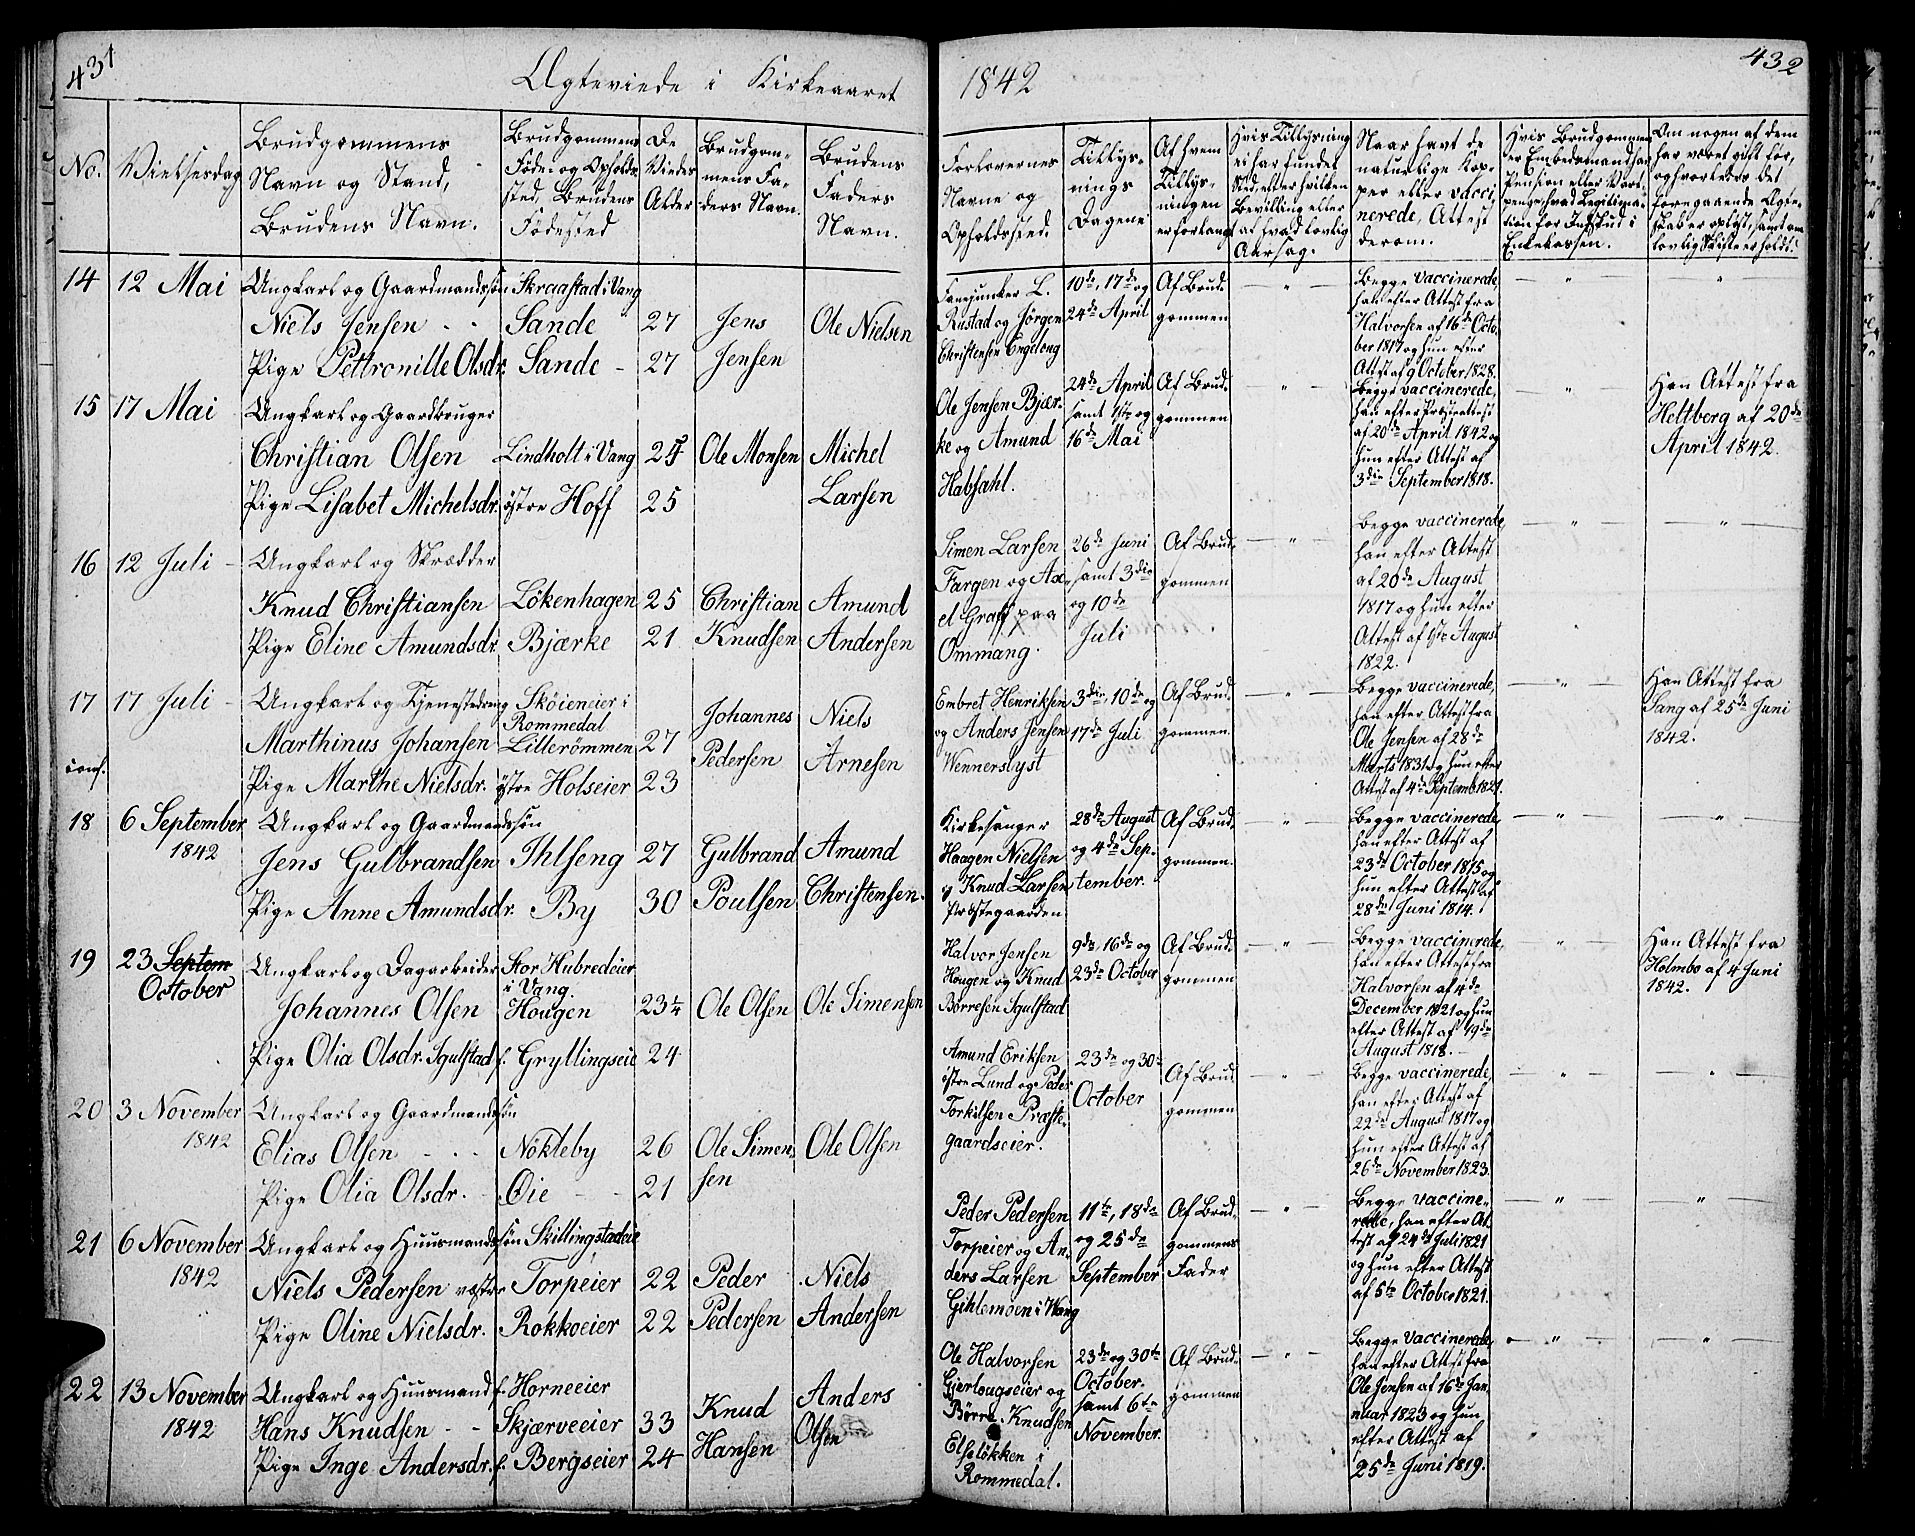 431
Ægteviede i Kirkeaaret
1842
432
No.
Vielsesdag
Brudgommens
Navn og Stand,
Brudens Navn.
Brudgommens
Føde- og Opholds-
sted, Brudens
Fødested
De
Viedes
Alder
Brudgom-
mens Fa-
ders Navn.
Brudens
Faders
Navn.
Forlovernes
Navne og
Opholdssted.
Tillys-
nings
Dagene
Af hvem
Tillys-
ningen
er forlangt
Hvis Tillysning
ei har fundet
Sted, efter hvilken
Bevilling eller
af hvad lovlig
Aarsag.
Naar havt de
naturlige Kop-
per eller vacci-
nerede, Attest
derom.
Hvis Brudgommen
er Embedsmand han
Pension eller Vart-
penge, hvad Legitima-
tion for Indskud i
Enkekassen.
Om nogen af dem
har været gift før,
og hvorledes det
foregaaende Ægte-
skab er opløst, samt om
lovlig Skifte er holdt.
14 12 Mai Ungkarl og Gaardmandssøn Skraastad i Vang
Niels Jensen Sande 27 Jens Ole Nielsen
Pige Pettronille Olsdr. Sande 27 Jensen
Fanejunker L.
Rustad og Jörgen
Christensen Engelong
10de, 17de og
24de April
Af Brud-
gommen
Begge vaccinerede,
han efter Attest fra
Halvorsen af 16de Octo-
ber 1817 og hun efter
Attest af 9 October 1828.
15 17 Mai Ungkarl og Gaardbruger
Christian Olsen Lindholt i Vang 25 Ole Monsen Michel
Pige Lisabet Michelsdr. östre Hoff 25 Larsen
Ole Jensen Bjær-
ke og Amund
Habsahl.
24de April
samt 1ste og
16de Mai
Af Brud-
gommen
Begge vaccinerede,
han efter Præsteattest
af 20de April 1842 og
hun efter Attest af
3die September 1818.
Han Attest fra
Heltberg af 20de
April 1842.
16 12 Juli Ungkarl og Skrædder
Knud Christiansen Lökenhagen 25 Christian Amund
Pige Eline Amundsdr. Bjærke 21 Knudsen Andersen
Simen Larsen
Fargen og Ax-
el Graff paa
Ommang.
26de Juni
samt 3die
og 10de
Juli
Af Brud-
gommen
Begge vaccinerede,
han efter Attest
af 20de August
1817 og hun efter
Attest af 1ste August
1822.
17 17 Juli Ungkarl og Tjenestedreng Sköieneier i
Rommedal
Marthinus Johansen Lillerömmen 27 Johannes Niels
conf.
Pige Marthe Nielsdr. östre Holseier 23 Pedersen Arnesen
Embret Henriksen
og Anders Jensen
Wennerslyst
3die, 10de og
17de Juli
Af Brud-
gommen.
Begge vaccinerede,
han efter Attest fra
Ole Jensen af 28de
Marts 1831 og hun efter
Attest af 4de Septemb. 1821.
Han Attest fra
Vang af 25de Juni
1842.
18 6 September Ungkarl og Gaardmandssøn
1842
Jens Gulbrandsen Ihlseng 27 Gulbrand Amund
Pige Anne Amundsdr. By 30 Poulsen Christensen.
Kirkesanger
Haagen Nielsen
og Knud Larsen
Præstegaarden
28de August
og 4de Sep-
tember.
Af Brud-
gommen.
Begge vaccinerede,
han efter Attest af
23de October 1815 og
hun efter Attest af
28de Juni 1814.
19 23 Septem Ungkarl og Dagarbeider Stor Hubredeier
October
i Vang.
Johannes Olsen Hougen 23½ Ole Olsen Ole Simensen
Pige Olia Olsdr. Igulstad f. Gryllingseie 24
Halvor Jensen
Hougen og Knud
Börresen Igulstad
9de, 16de og
23de October
Af Brud-
gommen
Begge vaccinerede,
han efter Attest fra
Halvorsen af 4de
December 1821 og hun
efter Attest af 19de
August 1818.
Han Attest fra
Holmbo af 4 Juni
1842.
20 3 November Ungkarl og Gaardmandssøn
1842
Elias Olsen Nökleby 26 Ole Simen- Ole Olsen
Pige Olia Olsdr. Öie 21 sen
Amund Eriksen
östre Lund og Peder
Torkilsen Præste-
gaardseier.
23de og 30te
October
Af Brud-
gommen
Begge vaccinerede,
han efter Attest af
22de August 1817 og
hun efter Attest af
26de November 1823.
21 6 November Ungkarl og Huusmandssøn Skillingstadeie
1842
Niels Pedersen væstre Torpeier 22 Peder Niels
Pige Oline Nielsdr. Rokkoeier 22 Pedersen Andersen
Peder Pedersen
Torpeier og An-
ders Larsen
Gihlemoen i Wang
11te, 18de
og 25de
September
Af Brud-
gommens
Fader
Begge vaccine-
rede, han efter At-
test af 24de Juli 1821
og hun efter Attest
af 5te October 1821.
22 13 November Ungkarl og Huusmand f. Horneeier
1842
Hans Knudsen Skjærveeier 33 Knud Anders
Pige Inge Andersdr. f. Bergseier 24 Hansen Olsen
Ole Halvorsen
Gjerlougseier og
Börre Knudsen
Elselökken i
Rommedal.
23de og 30te
October.
samt 6te
November.
Af Brud-
gommen
Begge vaccinerede,
han efter Attest fra
Ole Jensen af 16de Jan-
nuar 1823 og hun
efter Attest af
25de Juni 1819.